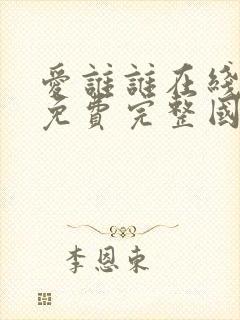 愛誰誰在綫
免費完整國
李恩東